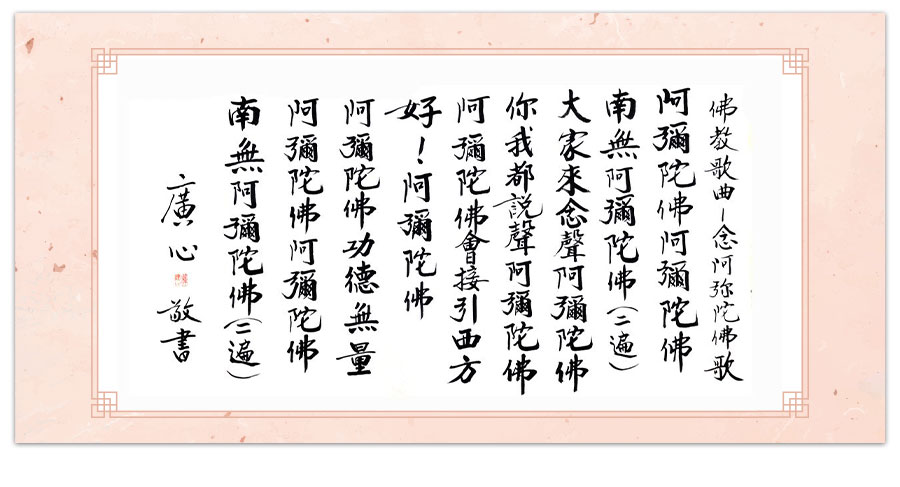 佛教歌曲－念阿弥陀佛歌
阿彌陀佛阿彌陀佛
南無阿彌陀佛（二遍）
大家來念聲阿彌陀佛
你我都說聲阿彌陀佛
阿彌陀佛會接引西方
好！阿彌陀佛
阿彌陀佛功德無量
阿彌陀佛阿彌陀佛
南無阿彌陀佛（二遍）
廣心
敬書